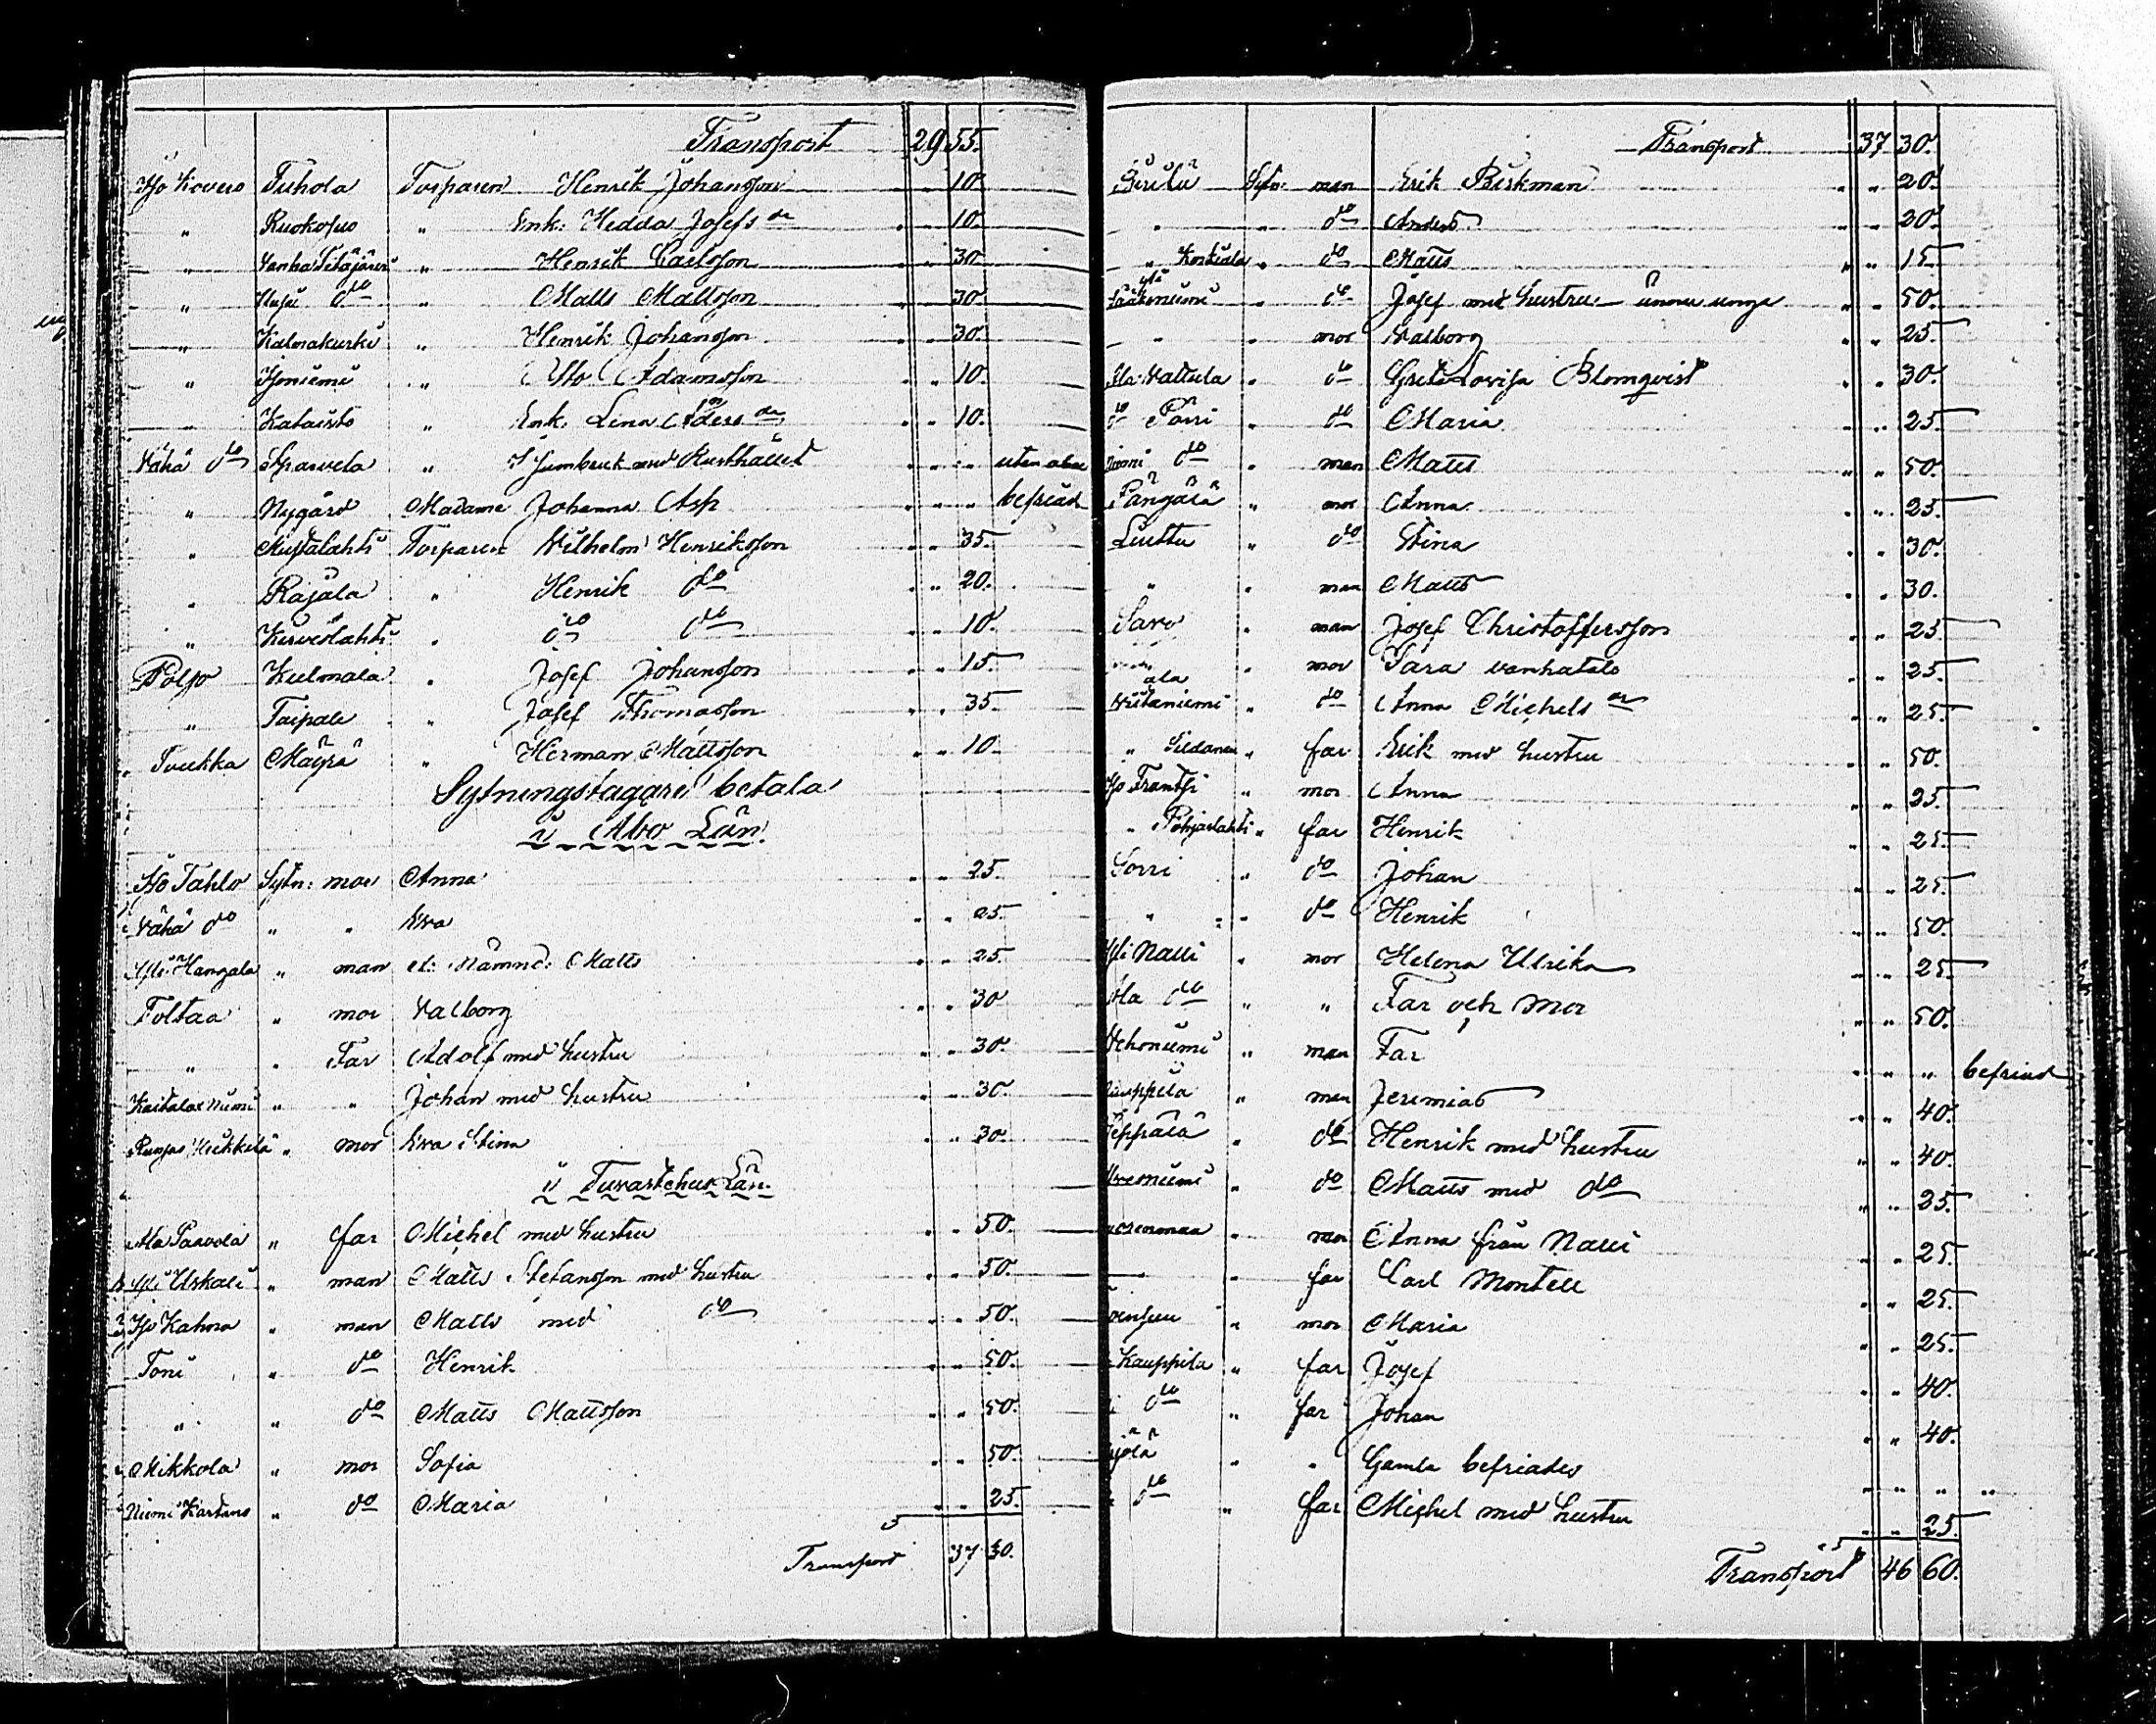 Transport 29 55.
Iso Kovero Tuhola Torparen Henrik Johansson " " 10.
" Ruokosuo " Enk: Hedda Josefs dr " " 10.
" Vanha Titäjänen " Henrik Carlsson " " 30
" Uusi do " Matts Mattsson " " 30.
" Kalmakurki " Henrik Johansson " " 30.
" Isoniemi " Otto Adamsson " " 10.
" Kataisto " Enk. Lena Anders dr " " 10.
Vähä do Sparvela " med Rusthållet " " " utan
" Nygård Madame Johanna Asp " " " befriad
" Mustalahti Torparen Wilhelm Henriksson " " 35.
" Rajala " Henrik do " " 20.
" Kirveslahti " do do " " 10.
Polso Kulmala " Josef Johansson " " 15.
" Taipale " Josef Thomasson " " 35.
" Tvekka Mäyrä " Herman Mattsson " " 10.
Sytningstagare betala
i Åbo Län.
Iso Tahlo Sytn: mor Anna " " 25.
Vähä do " " Eva " " 25.
Yli Hangala " man Nämnd: Matts " " 25.
Toltaa " mor Valborg " " 30
" " Far Adolf med hustru " " 30.
Kaitalax Niemi " " Johan med hustru " " 30.
Heikkilä " mor Eva Stina " " 30.
i Tavastehus Län.
Ala Paavola " far Michel med hustru " " 50.
Yli Uskali " man Matts Stefansson med hustru " " 50.
Iso Kahra " man Matts med do " " 50.
Toni " do Henrik " " 50.
" " do Matts Mattsson " " 50.
Mikkola " mor Sofia " " 50.
Niemi " do Maria " " 25.
Transport 37 30.
Transport 37 30.
Sytn: man Erik Birkman " " 20.
" do Anders " " 20.
" " do Matts " " 15
" do Josef med hustru " " 50.
" " mor Valborg " " 25.
Ala Vattula " do Greta Lovisa Blomqvist " " 30.
do Parri " do Maria " " 25.
do " man Matts " " 50.
" mor Anna " " 25.
Liuttu " do Stina " " 30.
" " man Matts " " 30.
Savo " man Josef Christoffersson " " 25
" mor Sara vanhatalo " " 25.
" do Anna Michels dr " " 25.
" " far Erik med hustru " " 50.
Iso Frantsi " mor Anna " " 25.
" Pohjaslahti " far Henrik " " 25.
Sorri " do Johan " " 25.
" " do Henrik " " 50.
Yli Nalli " mor Helena Ulrika " " 25.
Ala do " " Far och mor " " 50.
" man Far " " " befriad
" man Jeremias " " 40.
" do Henrik med hustru " " 40.
" do Matts med do " " 25.
" mor Anna från Nalli " " 25.
" far Carl Montell " " 25.
" mor Maria " " 25.
Kauppila " far Josef " " 40.
do " far Johan " " 40.
" " Gamla befriades " " " "
do " far Michel med hustru " " 25.
Transport 46 60.